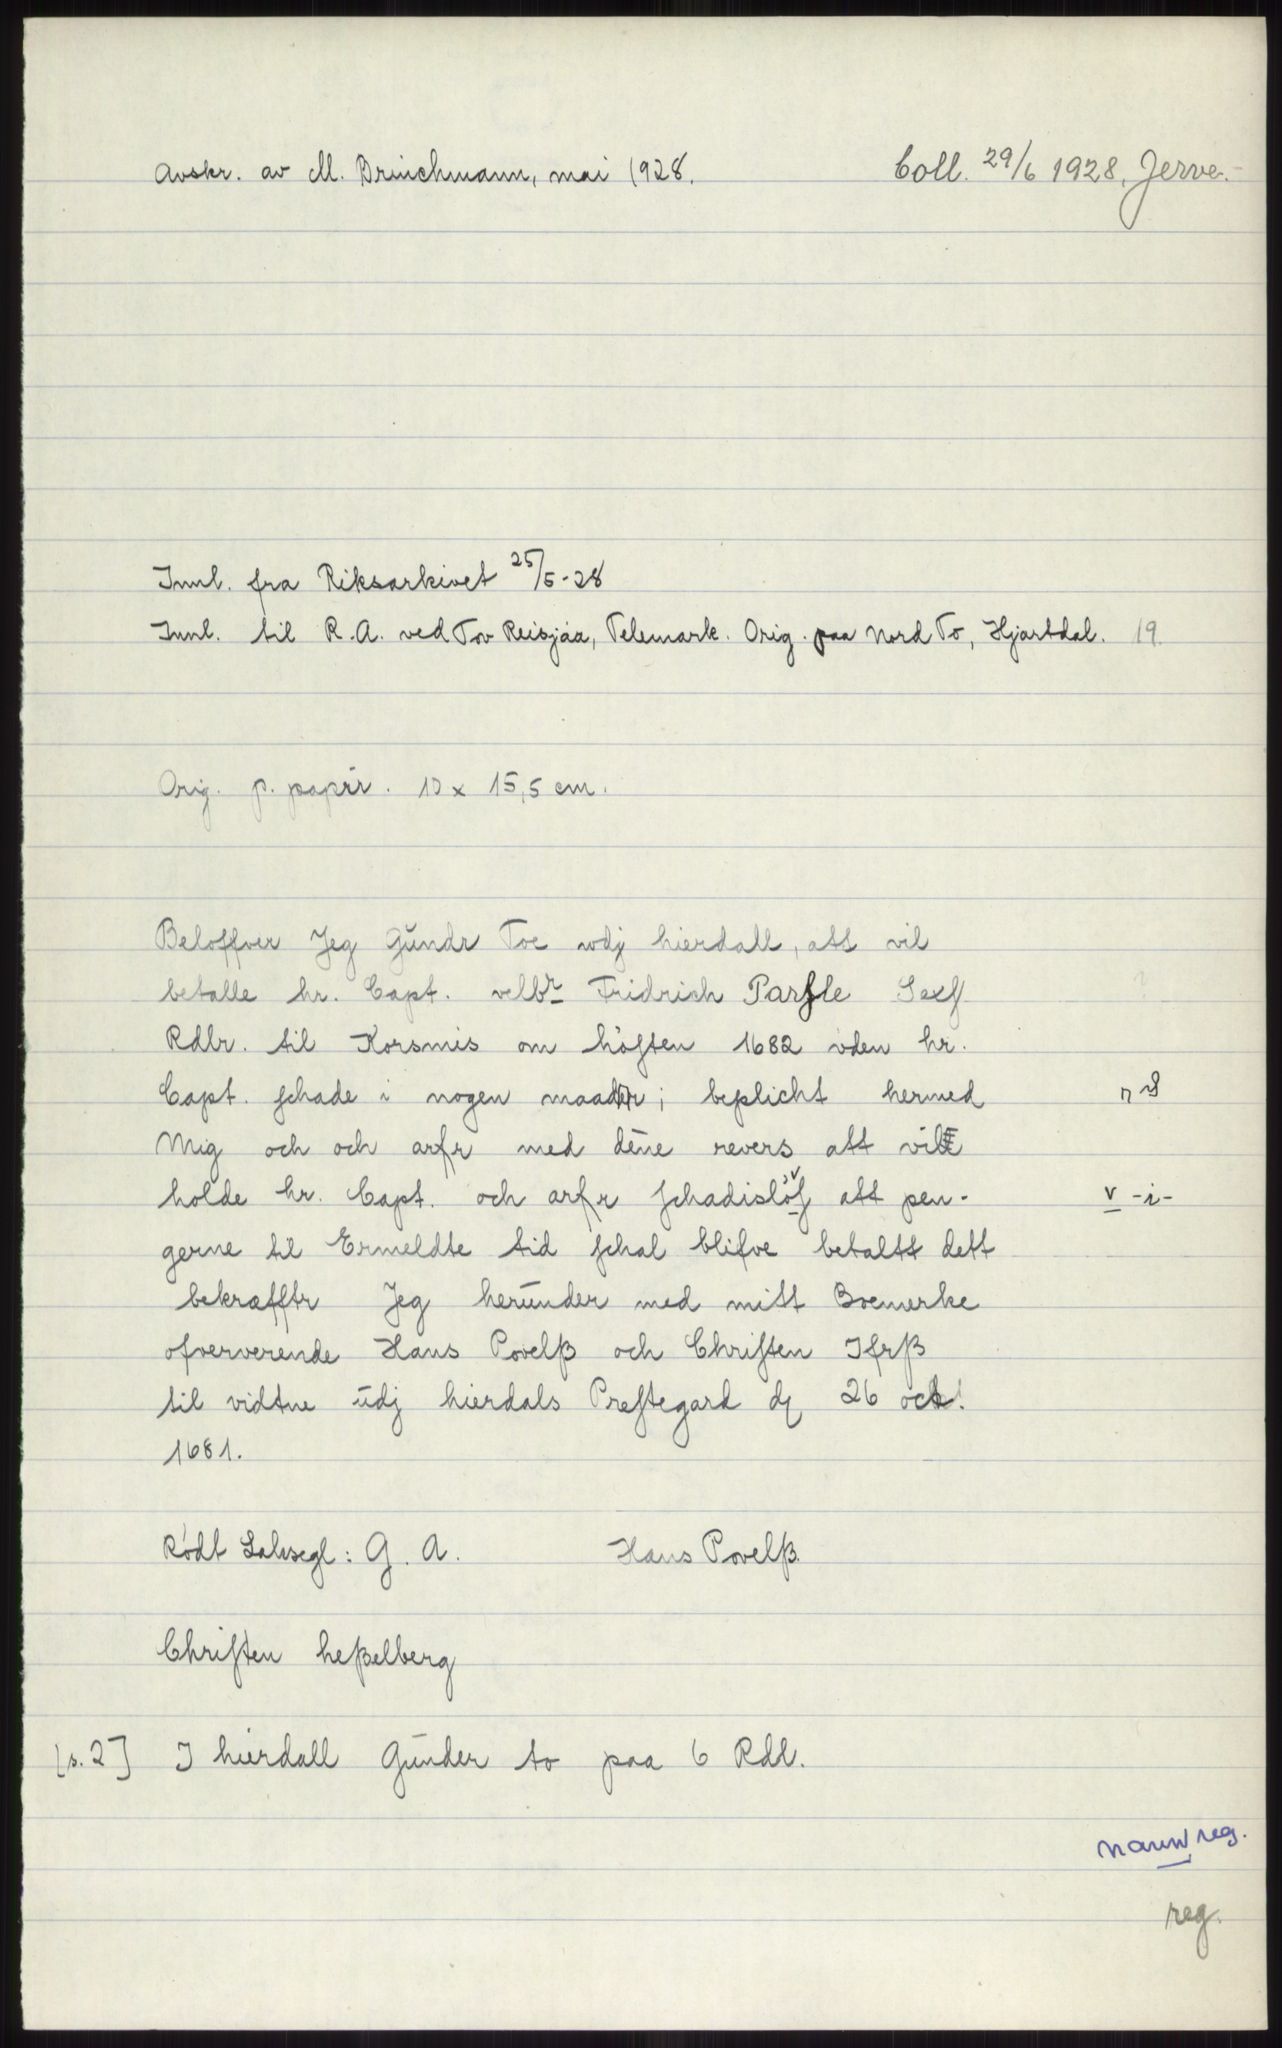 Avskr. av M. Brinchmann, mai 1928. Coll. 29/6 1928, Jerve.-
Innl. fra Riksarkivet 25/5-28
Innl. til R.A. ved Tov Reisjaa, Telemark. Orig. paa Nord To, Hjartdal. 19
Orig. p. papir. 10 x 15,5 cm.
Beloffver Jeg Gŭndr Toe vdj hierdall, att vil
betalle hr. Capt. velbr Fridrich Parsle Sexs
Rdlr. til Korsmis om høsten 1682 vden hr.
Capt. schade i nogen maader; beplicht hermed
Mig och och arfr med dēne revers att vill
holde hr. Capt. och arfr schadisløs att pen- v -i-
gerne til Ermeldte tid schal blifve betaltt dett
bekræfftr Jeg herŭnder med mitt Boemerke
ofververende Hans Povelß och Christen Ifrß
til vidtne ŭdj hierdals Prestegard d. 26 oct.
1681.
Rødt Laksegl: G. A. Hans Povelß.
Christen heßelberg
[s. 2] I hierdall Gŭnder to paa 6 Rdl.
navnreg.
reg.